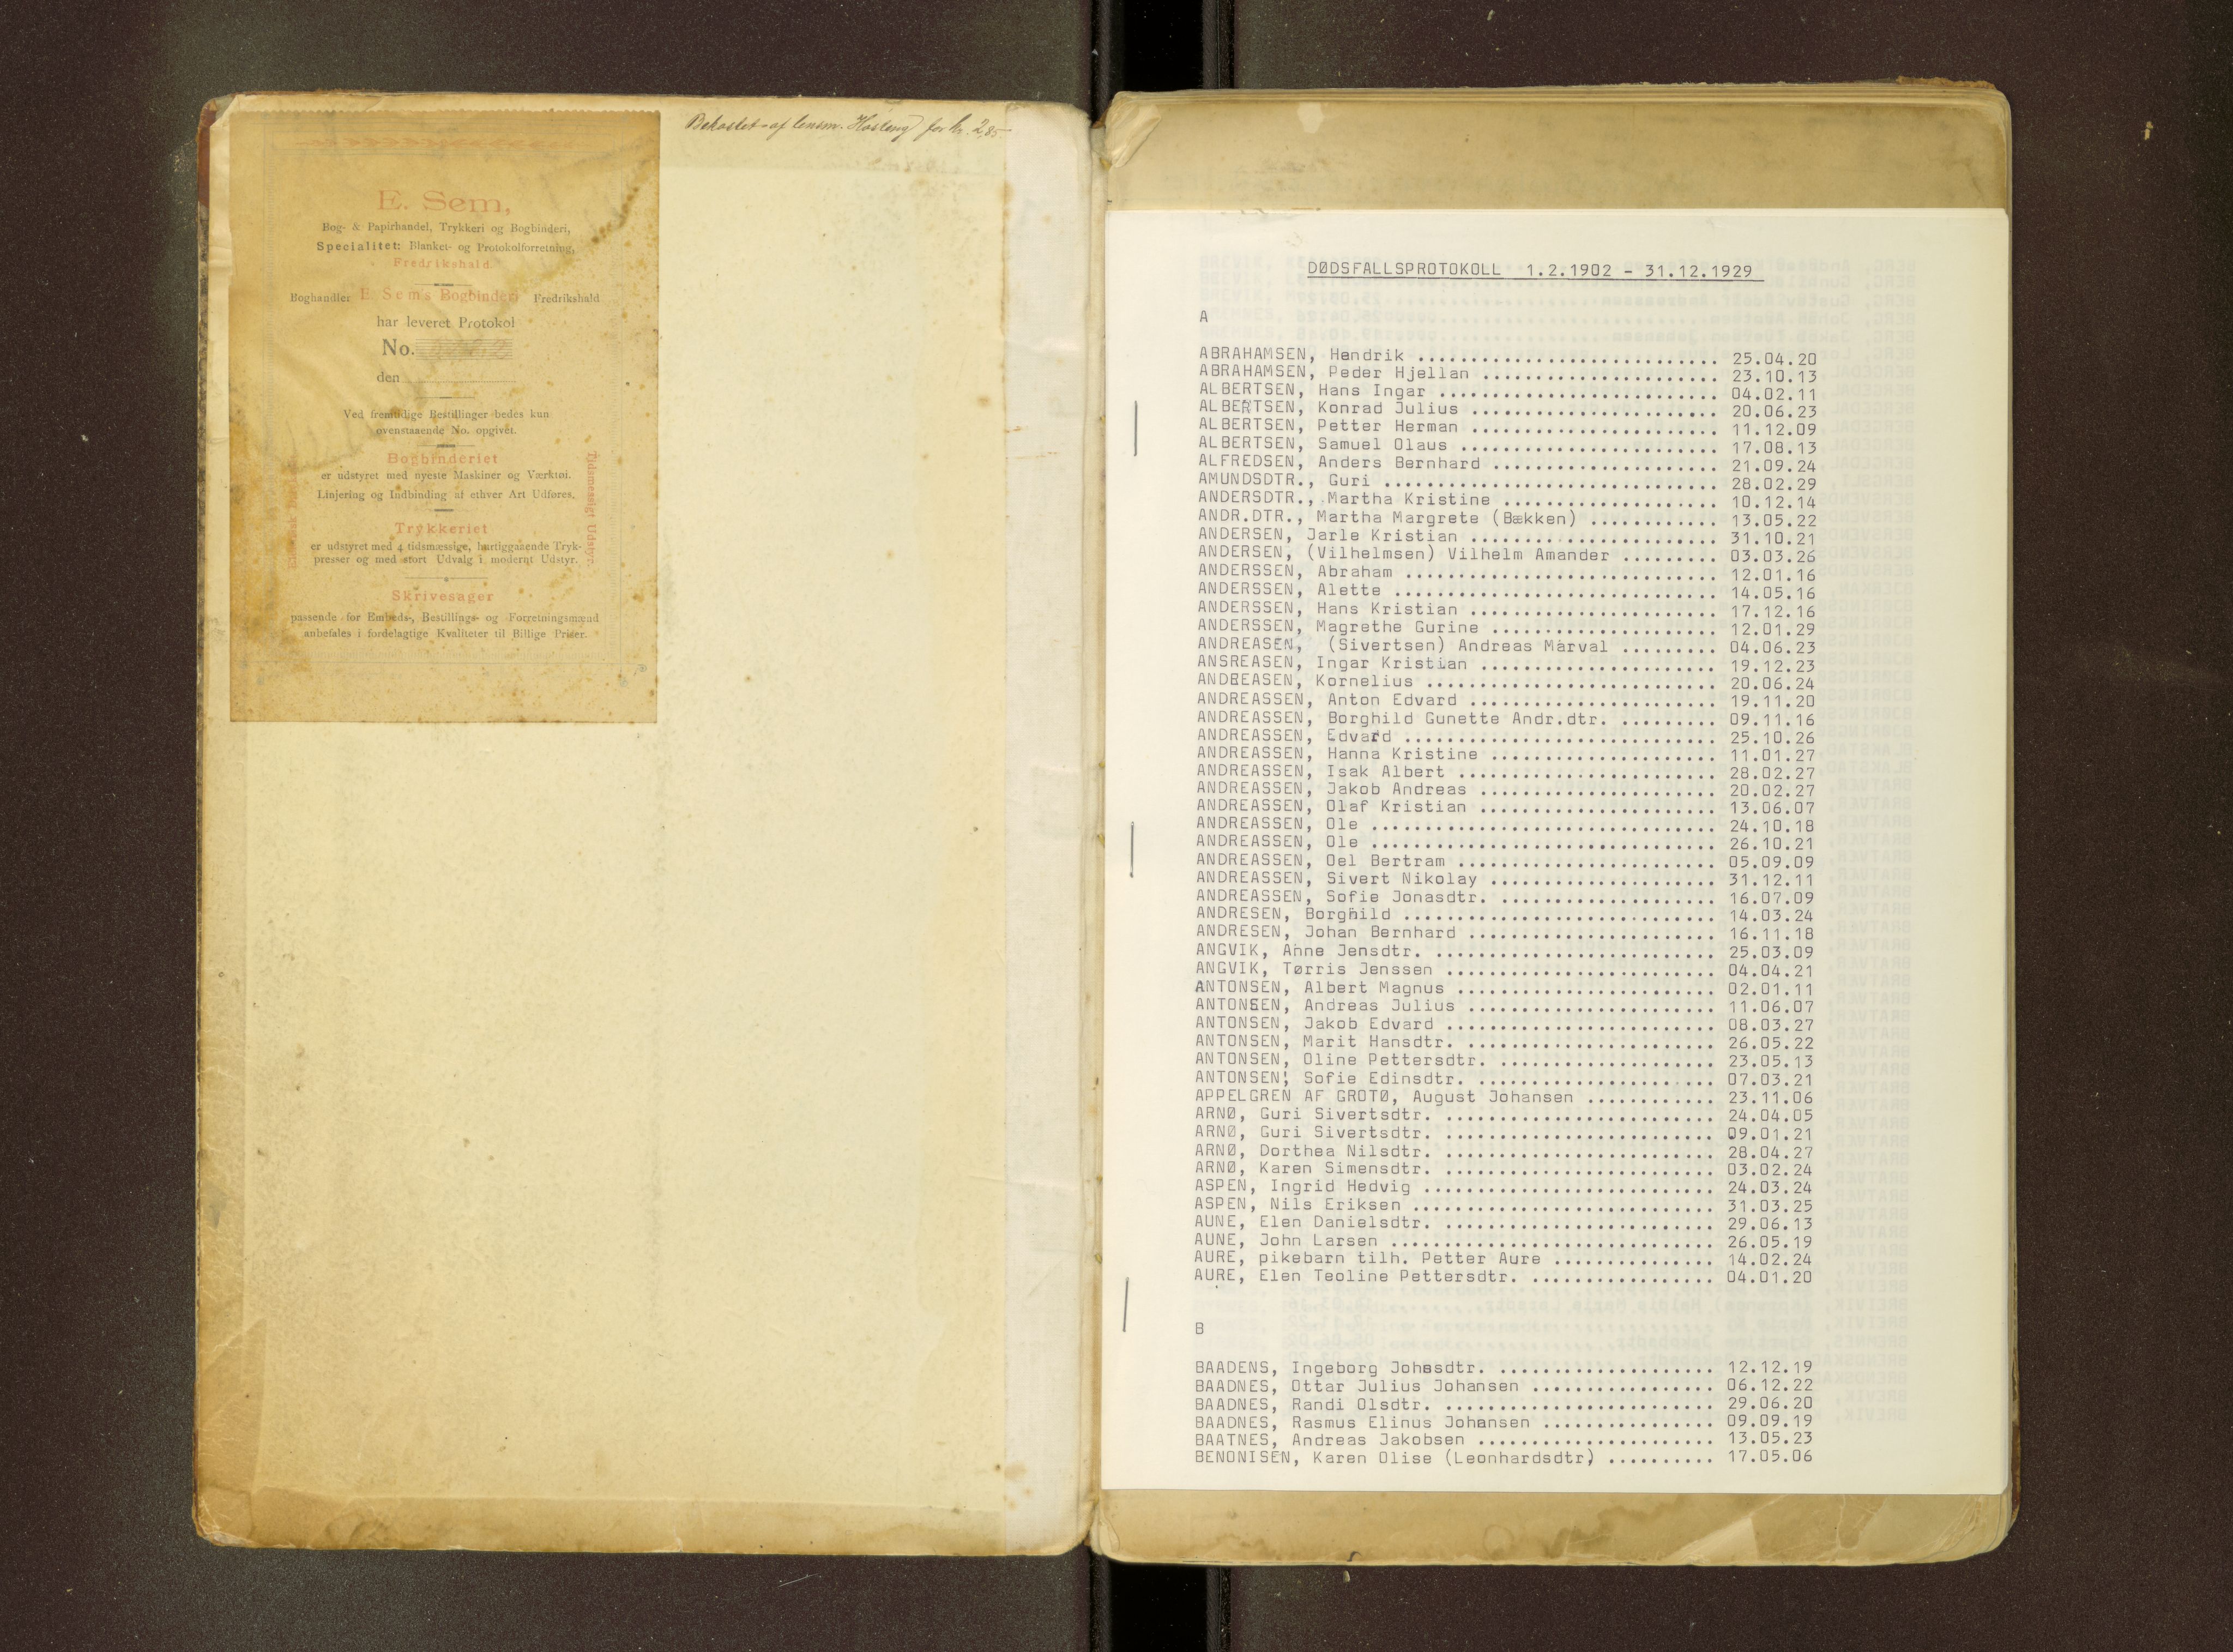 Bekostet af lensm. Hosteng for kr. 2,85
E. Sem,
Bog- & Papirhandel, Trykkeri og Bogbinderi,
Specialitet: Blanket- og Protokolforretning,
Fredrikshald.
Boghandler E. Sem's Bogbinderi Fredrikshald
har leveret Protokol
No.
den
Ved fremtidige Bestillinger bedes kun
ovenstaaende No. opgivet.
Bogbinderiet
er udstyret med nyeste Maskiner og Værktøi.
Linjering og Indbinding af ethver Art Udføres.
Trykkeriet
er udstyret med 4 tidsmæssige, hurtiggaaende Tryk-
presser og med stort Udvalg i modernt Udstyr.
Skrivesager
passende for Embeds-, Bestillings- og Forretningsmænd
anbefales i fordelagtige Kvaliteter til Billige Priser.
Tidsmessigt Udstyr.
DØDSFALLSPROTOKOLL 1.2.1902 - 31.12.1929
A
ABRAHAMSEN, Hendrik ............................ 25.04.20
ABRAHAMSEN, Peder Hjellan ...................... 23.10.13
ALBERTSEN, Hans Ingar .......................... 04.02.11
ALBERTSEN, Konrad Julius ....................... 20.06.23
ALBERTSEN, Petter Herman ....................... 11.12.09
ALBERTSEN, Samuel Olaus ........................ 17.08.13
ALFREDSEN, Anders Bernhard ..................... 21.09.24
AMUNDSDTR., Guri ............................... 28.02.29
ANDERSDTR., Martha Kristine .................... 10.12.14
ANDR.DTR., Martha Margrete (Bækken) ............ 13.05.22
ANDERSEN, Jarle Kristian ....................... 31.10.21
ANDERSEN, (Vilhelmsen) Vilhelm Amander ......... 03.03.26
ANDERSSEN, Abraham ............................. 12.01.16
ANDERSSEN, Alette .............................. 14.05.16
ANDERSSEN, Hans Kristian ....................... 17.12.16
ANDERSSEN, Magrethe Gurine ..................... 12.01.29
ANDREASEN, (Sivertsen) Andreas Marval ......... 04.06.23
ANSREASEN, Ingar Kristian ...................... 19.12.23
ANDREASEN, Kornelius ........................... 20.06.24
ANDREASSEN, Anton Edvard ....................... 19.11.20
ANDREASSEN, Borghild Gunette Andr.dtr. ......... 09.11.16
ANDREASSEN, Edvard ............................. 25.10.26
ANDREASSEN, Hanna Kristine ..................... 11.01.27
ANDREASSEN, Isak Albert ........................ 28.02.27
ANDREASSEN, Jakob Andreas ...................... 20.02.27
ANDREASSEN, Olaf Kristian ...................... 13.06.07
ANDREASSEN, Ole ................................ 24.10.18
ANDREASSEN, Ole ................................ 26.10.21
ANDREASSEN, Oel Bertram ........................ 05.09.09
ANDREASSEN, Sivert Nikolay ..................... 31.12.11
ANDREASSEN, Sofie Jonasdtr. .................... 16.07.09
ANDRESEN, Borghild ............................. 14.03.24
ANDRESEN, Johan Bernhard ....................... 16.11.18
ANGVIK, Anne Jensdtr. .......................... 25.03.09
ANGVIK, Tørris Jenssen ......................... 04.04.21
ANTONSEN, Albert Magnus ........................ 02.01.11
ANTONSEN, Andreas Julius ....................... 11.06.07
ANTONSEN, Jakob Edvard ......................... 08.03.27
ANTONSEN, Marit Hansdtr. ....................... 26.05.22
ANTONSEN, Oline Pettersdtr. .................... 23.05.13
ANTONSEN, Sofie Edinsdtr. ...................... 07.03.21
APPELGREN AF GROTØ, August Johansen ............ 23.11.06
ARNØ, Guri Sivertsdtr. ......................... 24.04.05
ARNØ, Guri Sivertsdtr. ......................... 09.01.21
ARNØ, Dorthea Nilsdtr. ......................... 28.04.27
ARNØ, Karen Simensdtr. ......................... 03.02.24
ASPEN, Ingrid Hedvig ........................... 24.03.24
ASPEN, Nils Eriksen ............................ 31.03.25
AUNE, Elen Danielsdtr. ......................... 29.06.13
AUNE, John Larsen .............................. 26.05.19
AURE, pikebarn tilh. Petter Aure ............... 14.02.24
AURE, Elen Teoline Pettersdtr. ................. 04.01.20
B
BAADENS, Ingeborg Johasdtr. .................... 12.12.19
BAADNES, Ottar Julius Johansen ................. 06.12.22
BAADNES, Randi Olsdtr. ......................... 29.06.20
BAADNES, Rasmus Elinus Johansen ................ 09.09.19
BAATNES, Andreas Jakobsen ...................... 13.05.23
BENONISEN, Karen Olise (Leonhardsdtr) .......... 17.05.06